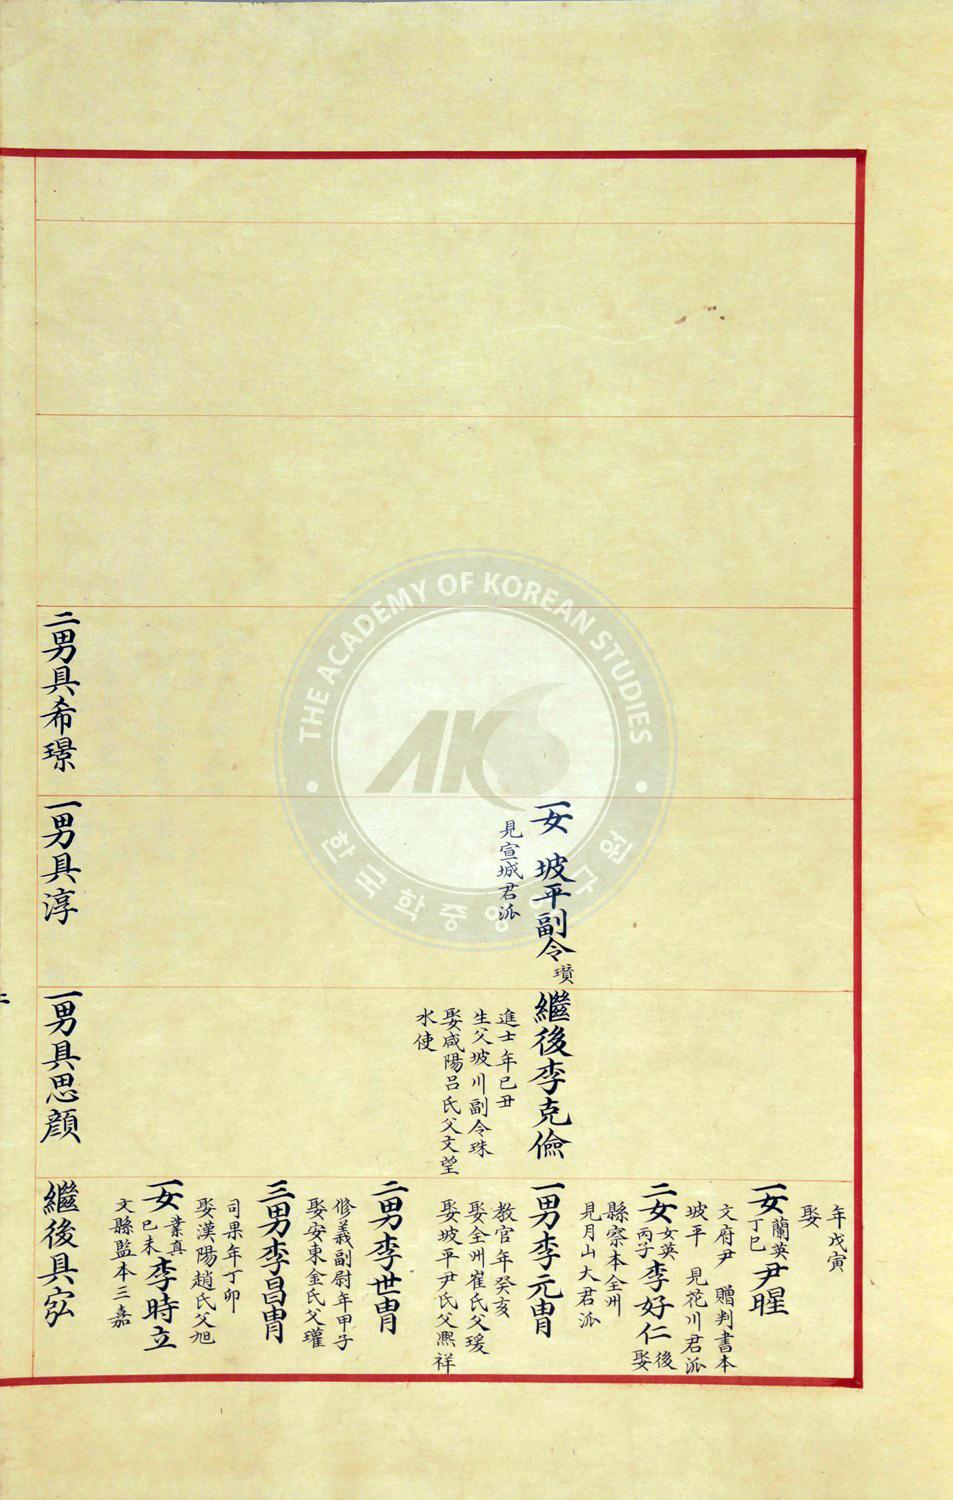 年戊寅
娶
一女蘭英丁巳尹暒
文府尹 贈判書本
坡平 見花川君派
二女女英丙子李好仁後娶
縣察本全州
見月山大君派
一女 坡平副令璳
見宣城君派
繼後李克儉
進士年己丑
生父坡川副令珠
娶咸陽呂氏父文望
水使
一男李元冑
教官年癸亥
娶全州崔氏父瑗
娶坡平尹氏父凞祥
二男李世冑
修義副尉年甲子
娶安東金氏父瓘
三男李昌冑
司果年丁卯
娶漢陽趙氏父旭
一女業真己未李時立
文縣監本三嘉
二男具希璟
一男具淳
一男具思顏
繼後具宖
THE ACADEMY OF KOREAN STUDIES
AKS
한국학중앙연구원